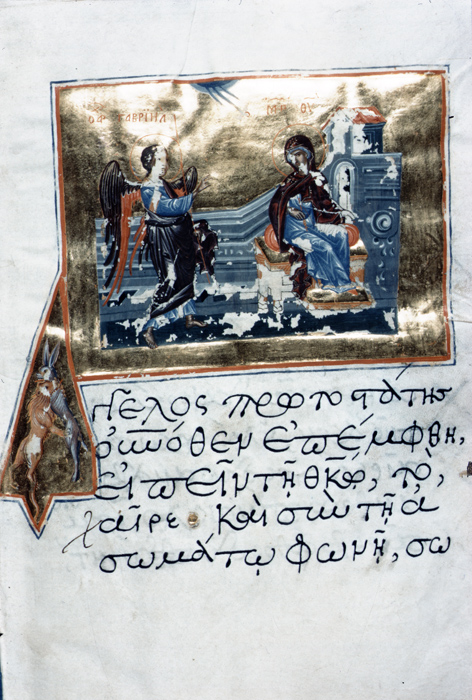 Ο ΑΡ ΓΑΒΡΙΗΛ
ΜΡ ΘΥ
γγελος πρωτοστάτης
οὐνόθεν ἐπέμφθη,
εἰπεῖν τῇ θκῳ, τὸ,
χαῖρε καὶ σὺν τῇ ἀ
σωμάτῳ φωνῇ, σω